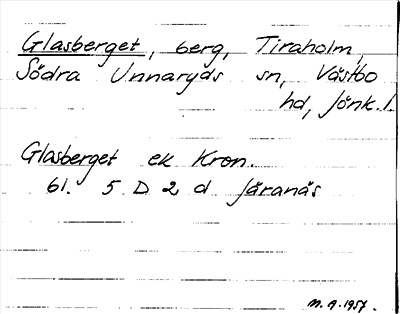 Glasberget, berg, Tiraholm,
Södra Unnaryds sn, Västbo
hd, Jönk. l.
Glasberget ek Kron.
61. 5 D 2 d Järanäs
M. A. 1957.